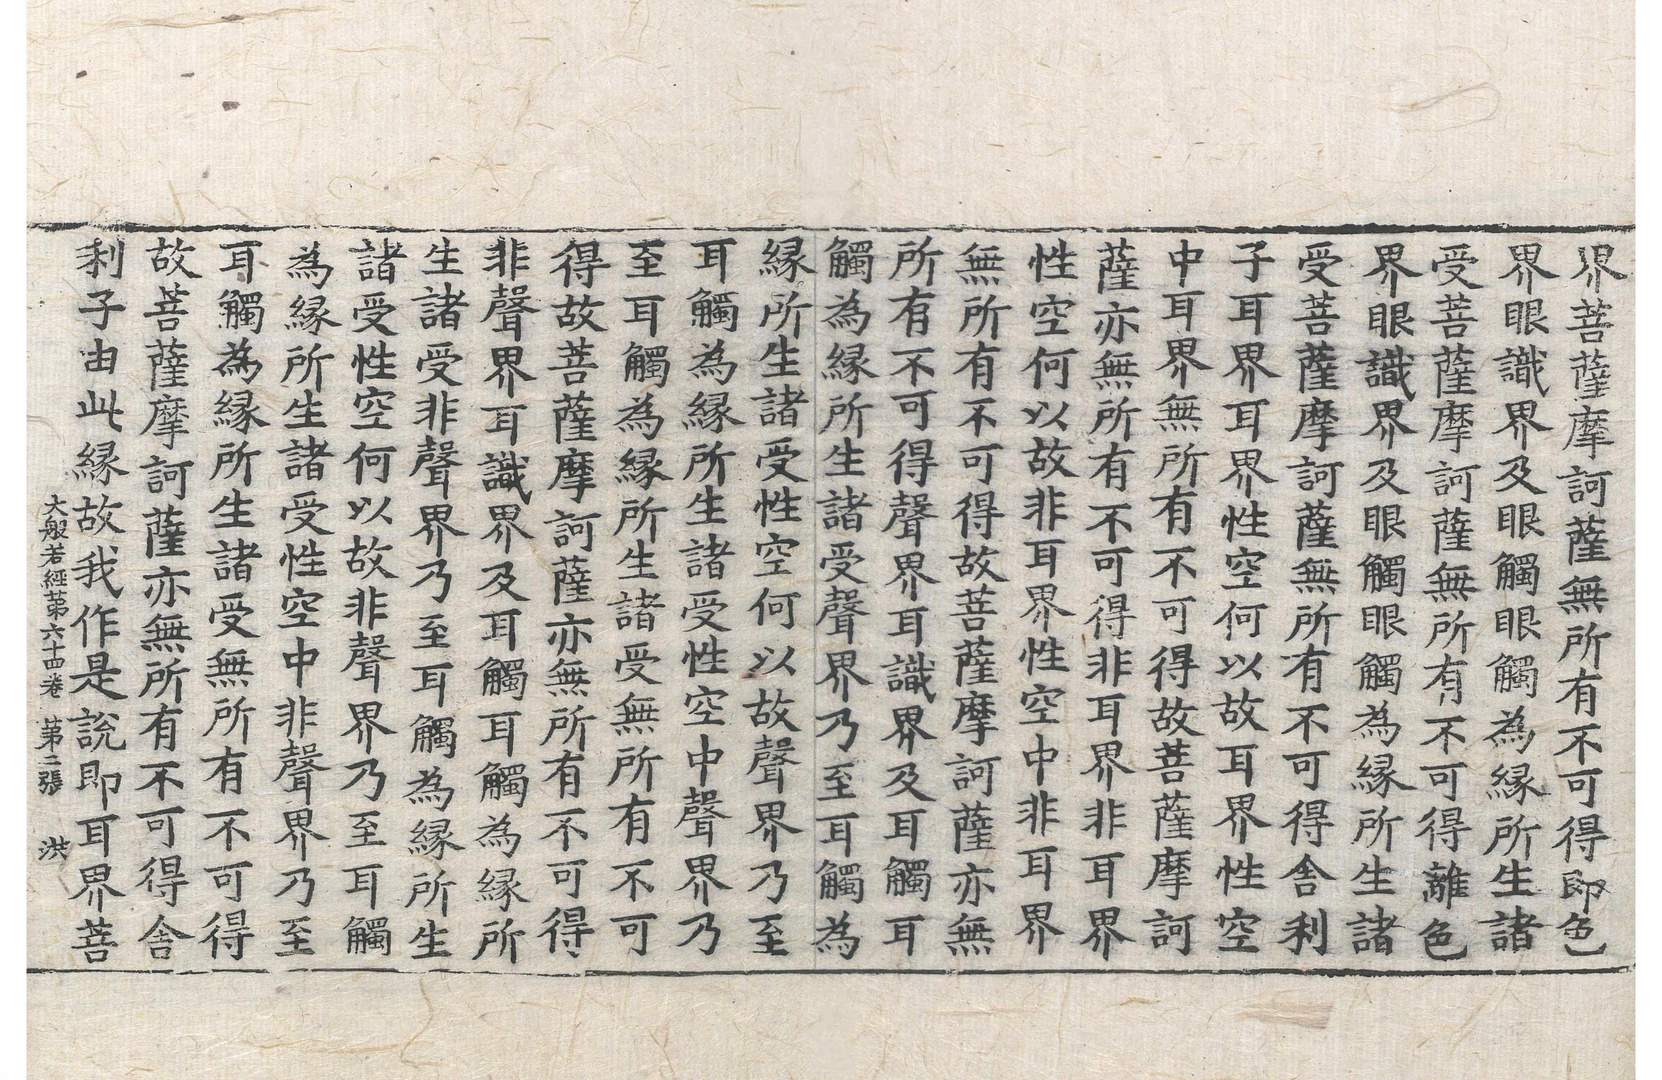 界菩薩摩訶薩無所有不可得即色
界眼識界及眼觸眼觸為緣所生諸
受菩薩摩訶薩無所有不可得離色
界眼識界及眼觸眼觸為緣所生諸
受菩薩摩訶薩無所有不可得舍利
子耳界耳界性空何以故耳界性空
中耳界無所有不可得故菩薩摩訶
薩亦無所有不可得非耳界非耳界
性空何以故非耳界性空中非耳界
無所有不可得故菩薩摩訶薩亦無
所有不可得聲界耳識界及耳觸耳
觸為緣所生諸受聲界乃至耳觸為
緣所生諸受性空何以故聲界乃至
耳觸為緣所生諸受性空中聲界乃
至耳觸為緣所生諸受無所有不可
得故菩薩摩訶薩亦無所有不可得
非聲界耳識界及耳觸耳觸為緣所
生諸受非聲界乃至耳觸為緣所生
諸受性空何以故非聲界乃至耳觸
為緣所生諸受性空中非聲界乃至
耳觸為緣所生諸受無所有不可得
故菩薩摩訶薩亦無所有不可得舍
利子由此緣故我作是說即耳界菩
大般若經第六十四卷 第二張 洪